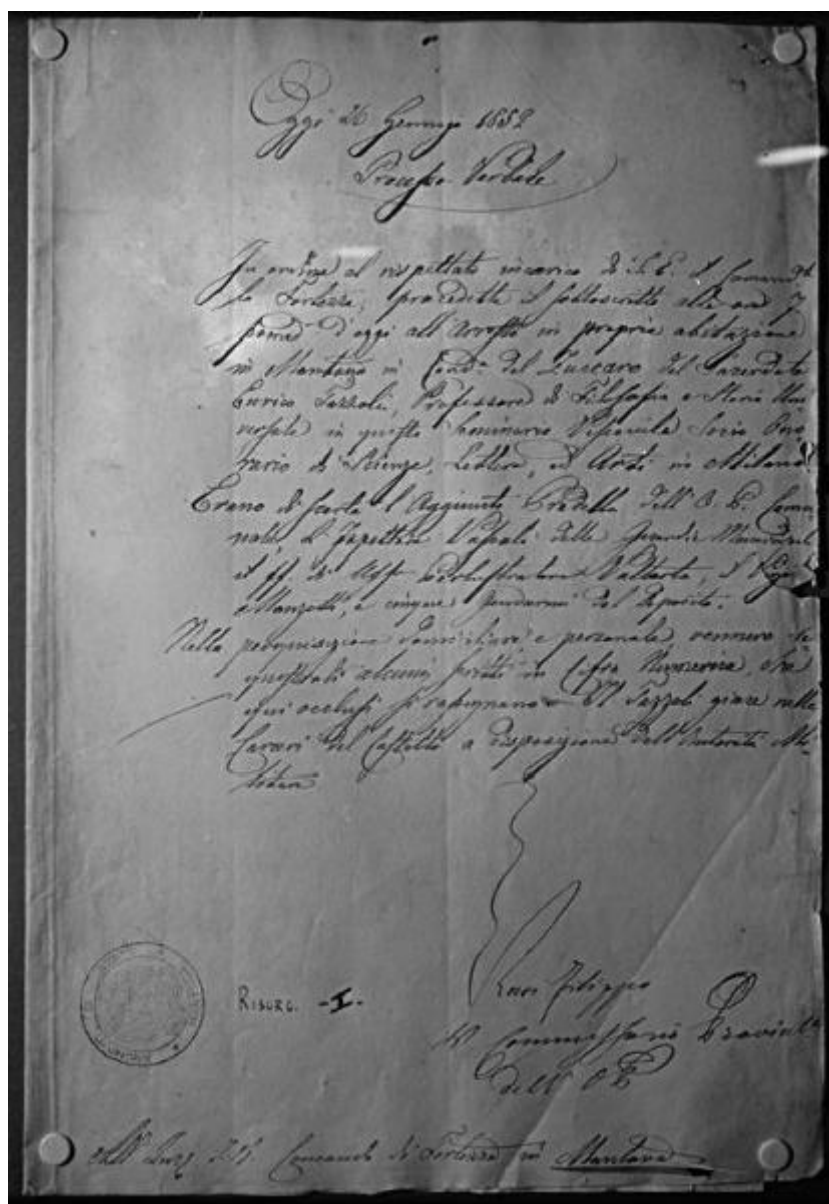 Oggi 26 Gennajo 1852
Processo Verbale
In ordine al rispettato incarico di S. E. il Comand.te
la Fortezza, procedette il sottoscritto alle ore 7
pomed. d'oggi all'arresto in propria abitazione
in Mantova in del Zuccaro del Sacerdote
Enrico Tazzoli, Professore di Filosofia e Storia Uni
versale in questo Seminario Vescovile Socio Ono
rario di Scienze, Lettere, ed Arti in Milano.
Erano di scorta l'Aggiunto Predella dell'O. P. Comu
nale, L'Ispettore delle Guardie Municipali
il ff. di il
Manzotti, e cinque Gendarmi del Deposito.
Nella perquisizione domiciliare e personale vennero se
questrati alcuni scritti in Cifra Numerica, che
qui occlusi si rassegnano. Il Tazzoli giace nelle
Carceri del Castello a disposizione dell'Autorità Mi
litare
RISORG. -I-
Filippo
Commissario Provinle
dell'O P
All' I. R. Comando di Fortezza in Mantova